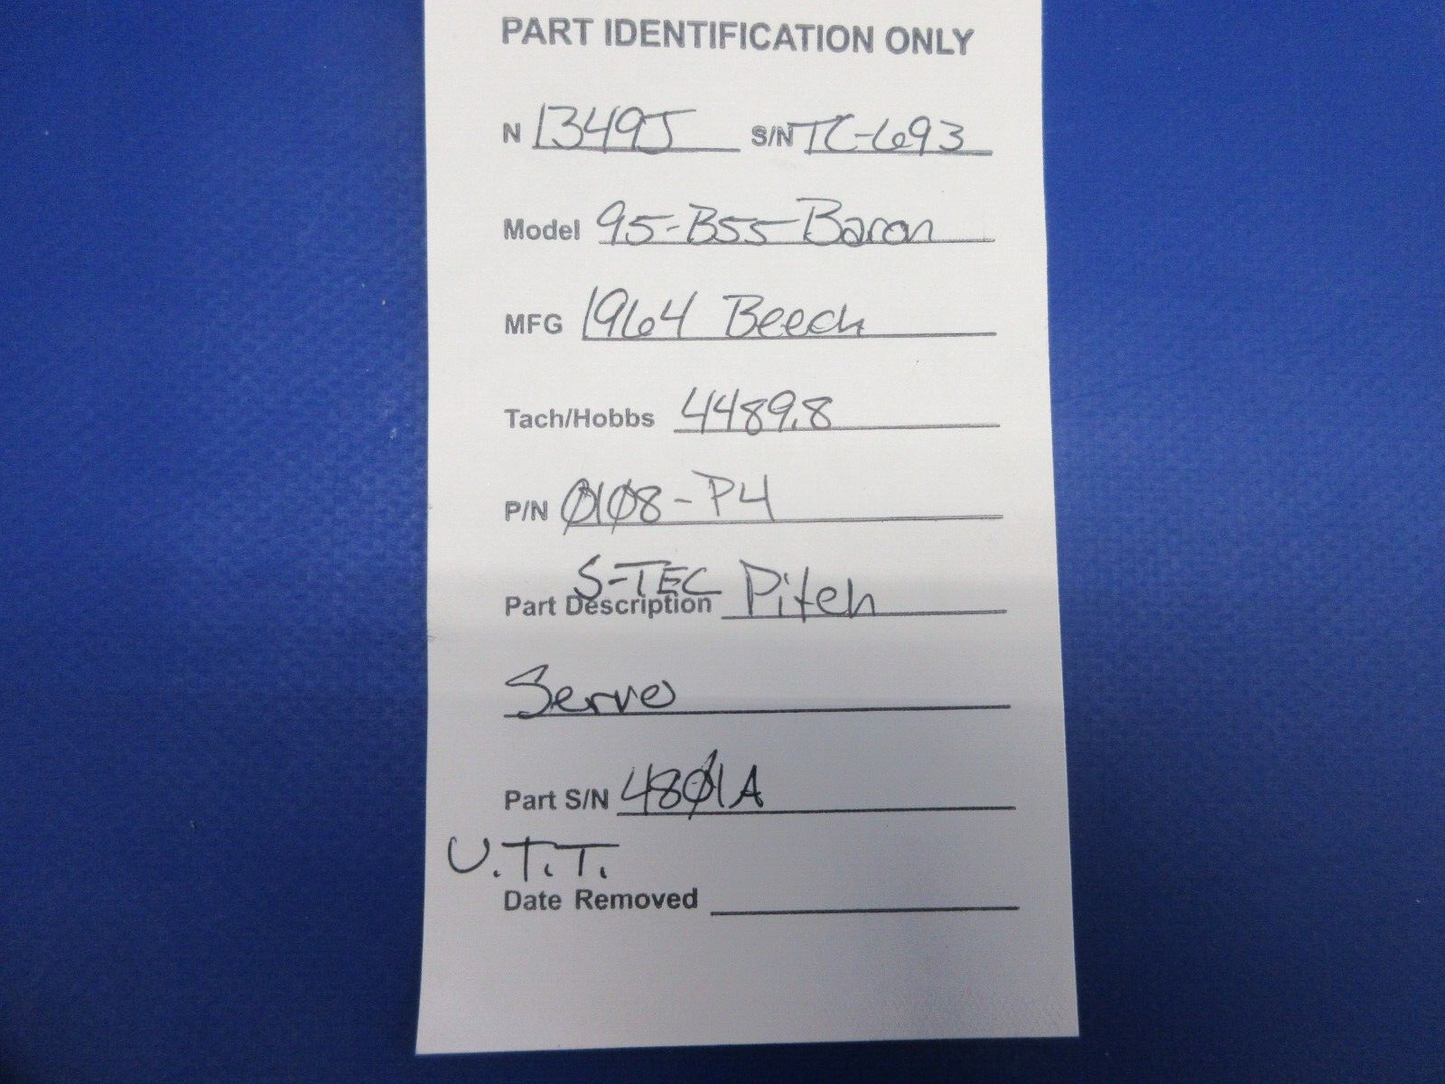 PART IDENTIFICATION ONLY
N 1349J S/N TC-693
Model 95-B55-Baron
MFG 1964 Beech
Tach/Hobbs 4489.8
P/N 0108-P4
S-TEC
Part Description Pitch
Servo
Part S/N 4801A
U.T.T.
Date Removed